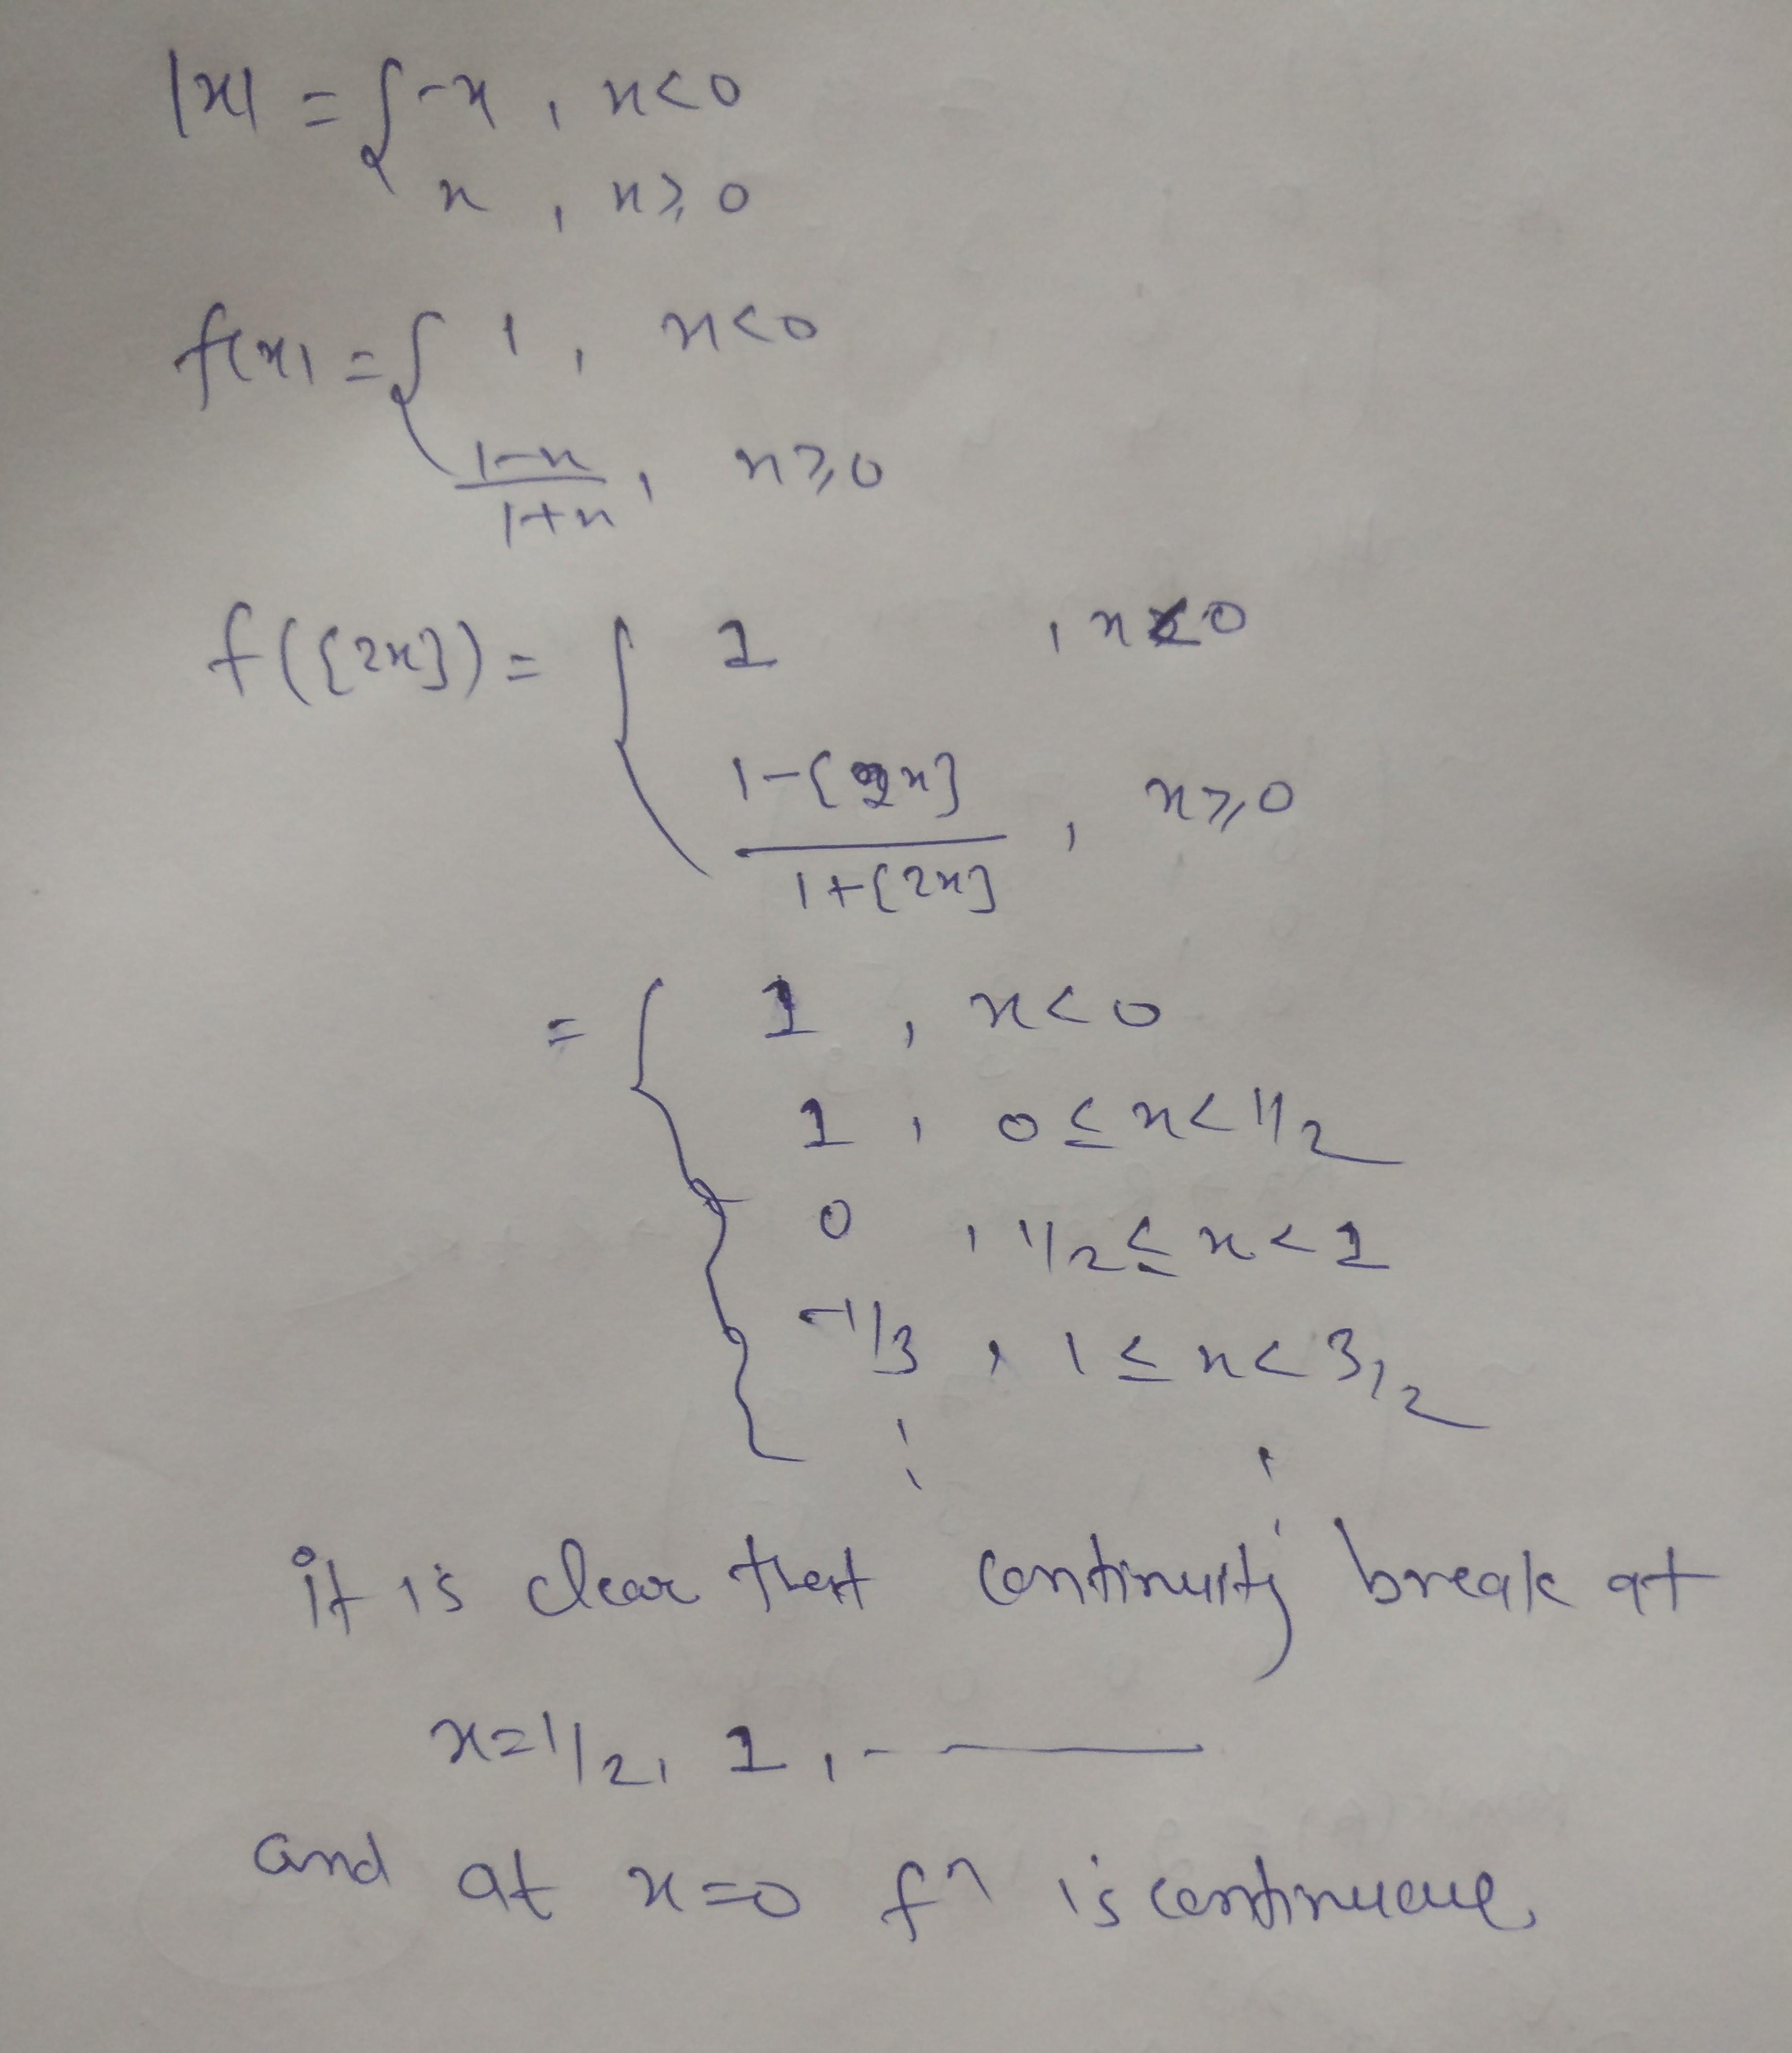 |x| = { -x , x<0
x , x⩾0
f(x) = { 1 , x<0
1-x / 1+x , x⩾0
f([2x]) = { 1 , x<0
1-[2x] / 1+[2x] , x⩾0
= { 1 , x<0
1 , 0≤x<1/2
0 , 1/2≤x<1
-1/3 , 1≤x<3/2
it is clear that continuity break at
x=1/2, 1, -
and at x=0 fn is continuous